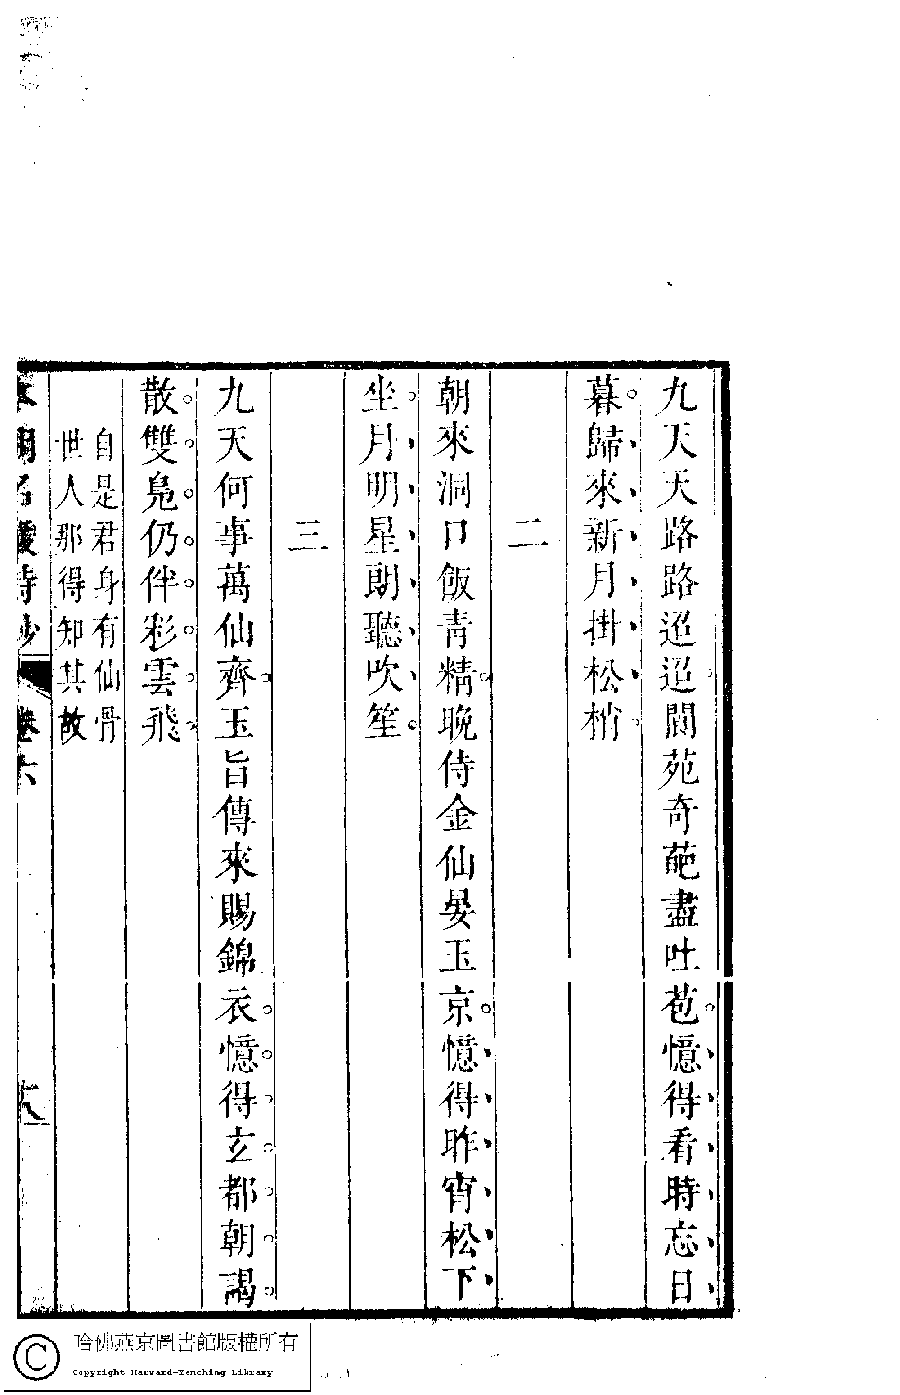 九天天路路迢迢閬苑奇葩盡吐苞憶得看時忘日
暮歸來新月掛松梢
二
朝來洞口飯青精晚侍金仙晏玉京憶得昨宵松下
坐月明星朗聽吹笙
三
九天何事萬仙齊玉旨傳來賜錦衣憶得玄都朝謁
散雙鳧仍伴彩雲飛
自是君身有仙骨
世人那得知其故
本朝名媛詩鈔
卷六
六
哈佛燕京圖書館版權所有
Copyright Harvard-Yenching Library